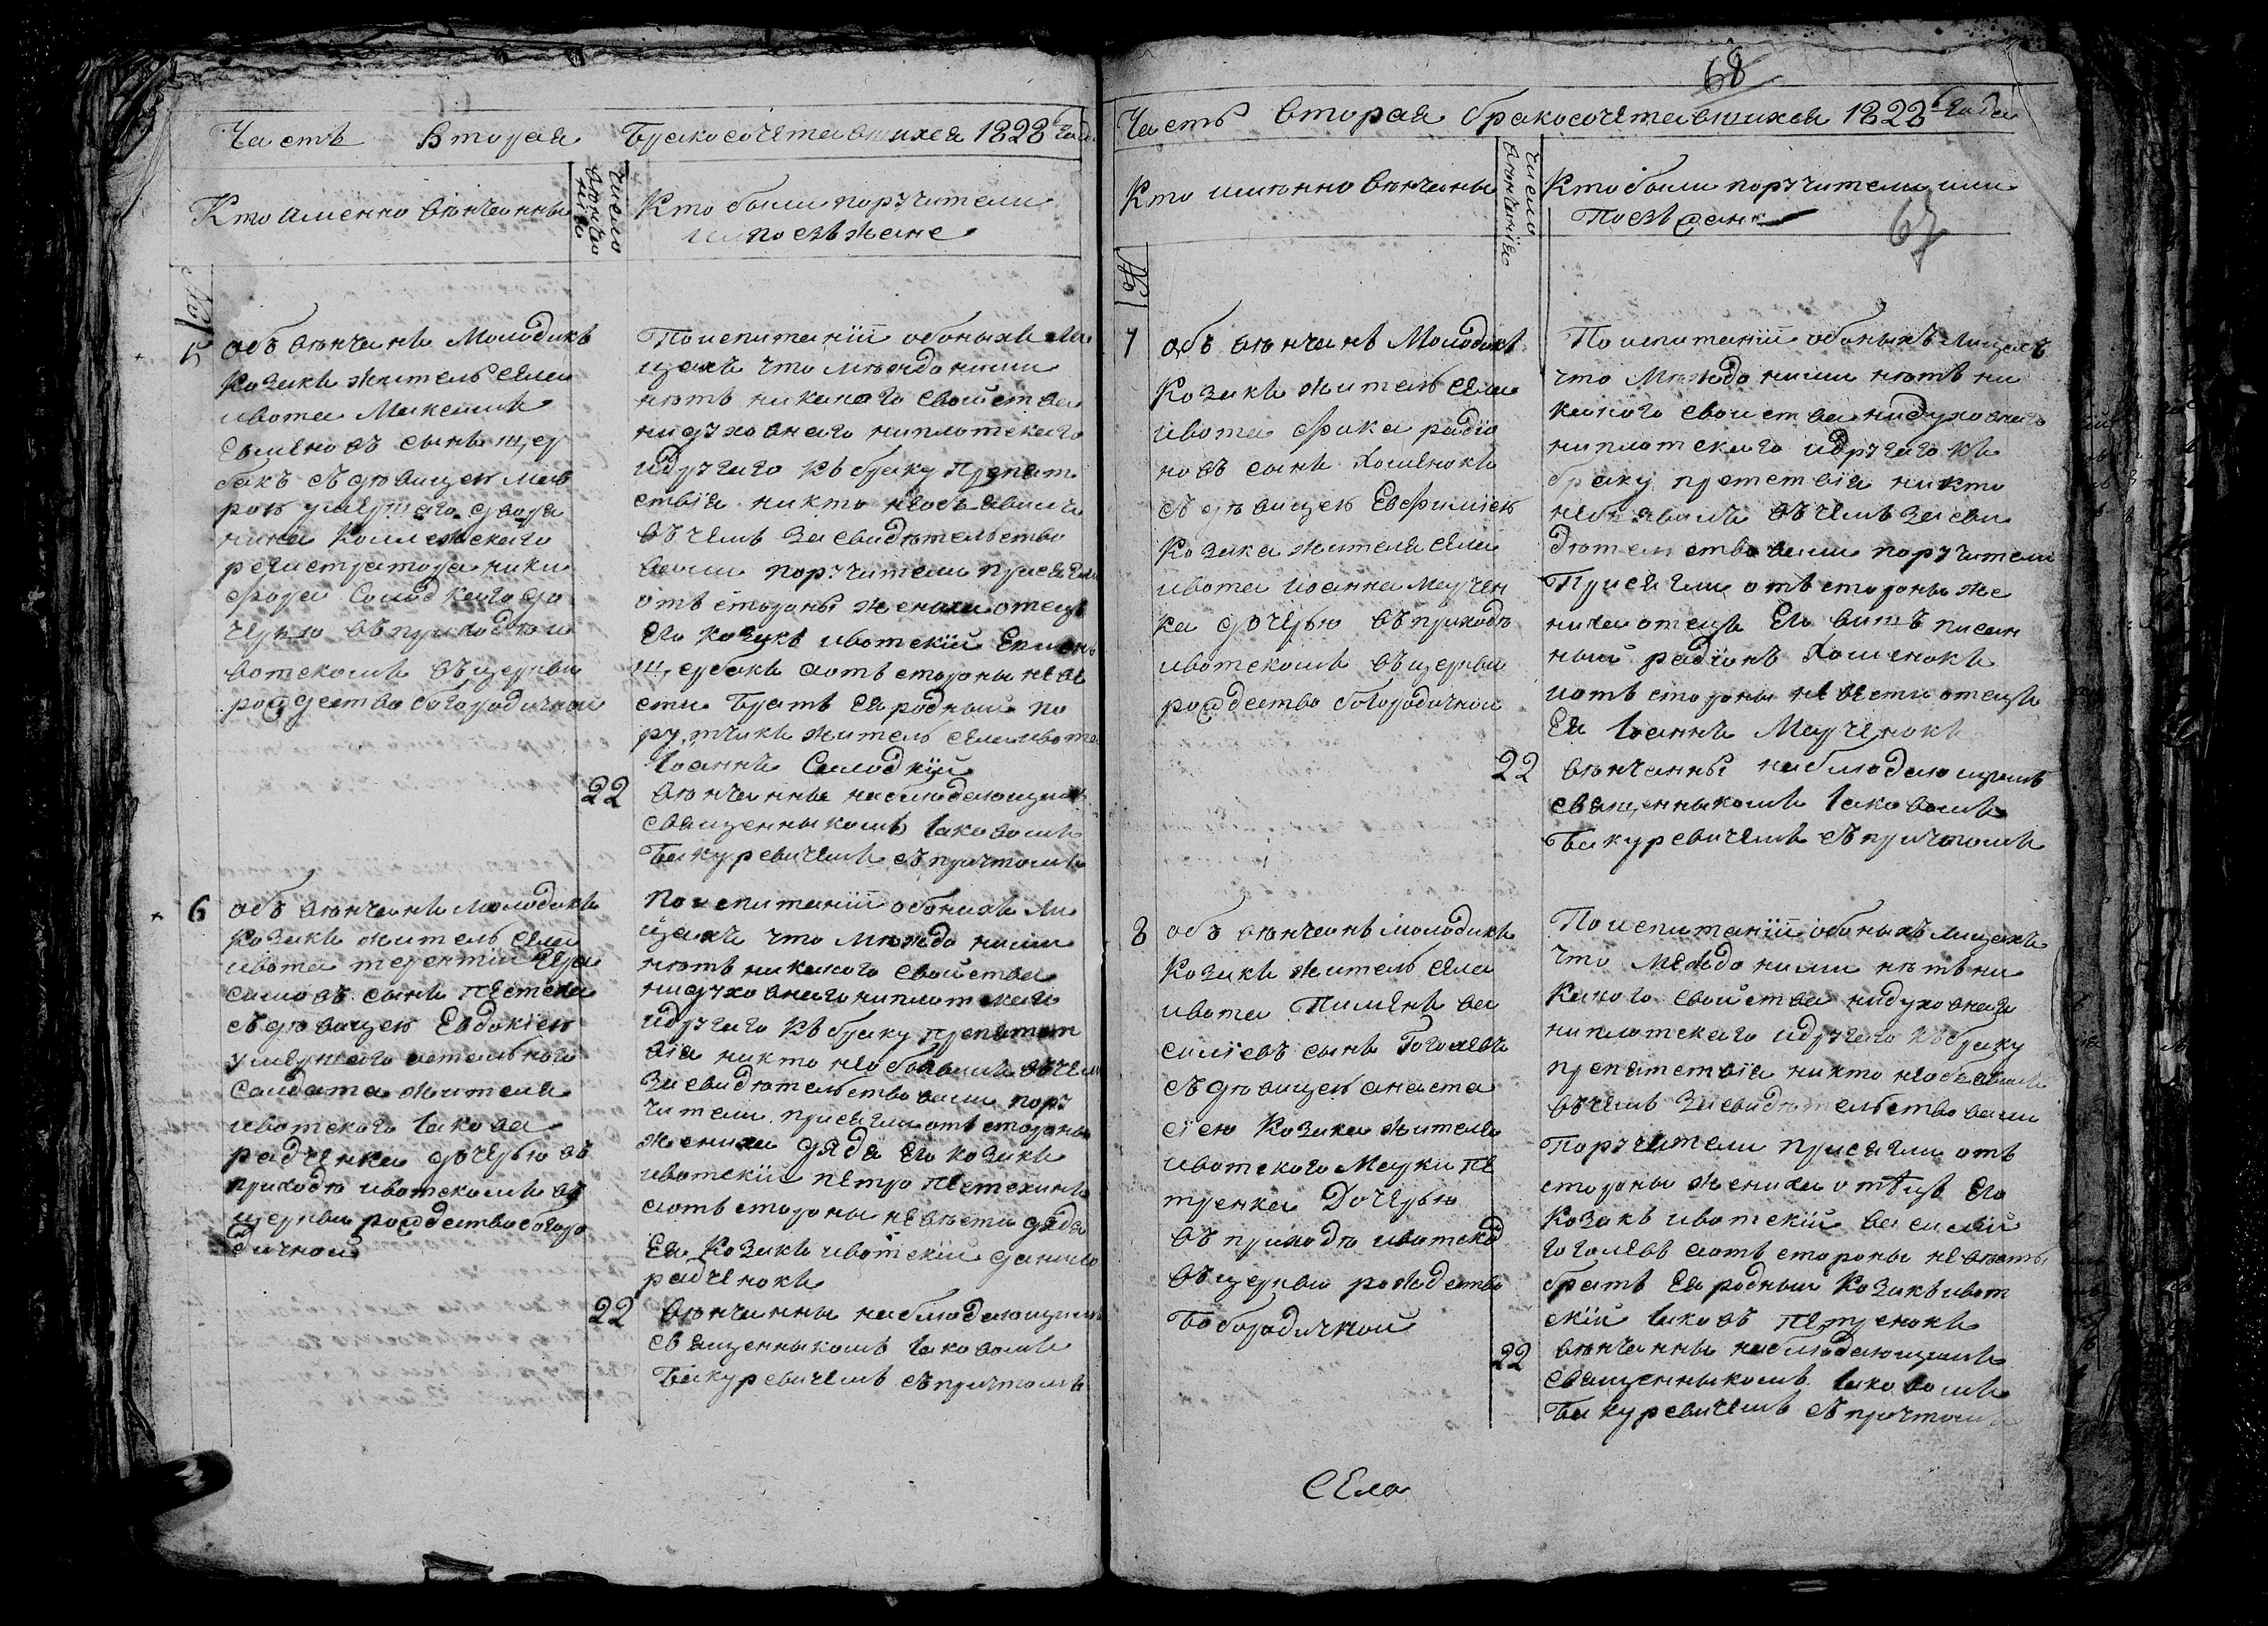 Часть Вторая Бракосочетавшихся 1828 Года
Кто аменно венчанны
число венчания
Кто были поручители
или поезжане
№
5
обвѣнчанъ Молодикъ
Козакъ житель села
ивота Максимъ
Евменовъ сынъ щер
бакъ съ дѣвицею мав
рою умершаго дворя
нина коллежскаго
регистратора ники
фора Солодкаго до
черью въ приходѣ и
вотскомъ въ церкви
рождество богородичной
По испитаніи обоныхъ ли
цахъ что мѣждо ними
нѣтъ никакого свойства
ни духовнаго ни плотскаго
и другаго къ браку препят
ствія никто необъявилъ
въ чемъ засвидѣтельство
вали поручители присягли
отъ стороны жениха отецъ
Его козакъ ивотскій Евменъ
щербакъ а отъ стороны неве
сти братъ Ея родный по
рутчикъ житель села ивота
Іоаннъ Солодкій
22
вѣнчанны наблюдающимъ
священныкомъ Іаковомъ
Бакуревичемъ съ причтомъ
6
обвѣнчанъ молодикъ
Козакъ житель села
ивота терентий Гера
симовъ сынъ
съ дѣвицею Евдокіею
умершаго
Салдата жителя
ивотского Іакова
радченка дочерью въ
приходѣ ивотскомъ въ
церкви рождество богоро
дичной
По испитаніи обонихъ ли
цахъ что мѣждо ними
нѣтъ никакого свойства
ни духовнаго ни плотскаго
и другаго къ браку препятст
вія никто необъявилъ въ чемъ
засвидѣтельствовали пору
чители присягли отъ стороны
жениха дядя Его козакъ
ивотскіи петро
а отъ стороны невѣсти дядя
Ея Козакъ ивотскій данило
радченокъ
22
вѣнчанны наблюдающимъ
священныкомъ Іаковомъ
Бакуревичемъ съ причтомъ
68
Часть вторая бракосочетавшихся 1828 Года
Кто имѣнно вѣнчаны
число вѣнчанія
Кто были поручители или
Поезжани
67
№
7
обвѣнчанъ Молодикъ
Козакъ житель села
ивота фока радіо
новъ сынъ Хоменокъ
съ дѣвицею Евфиміею
Козака жителя села
ивота иоанна Марчен
ка дочерью въ приходѣ
ивотскомъ въ церкви
рождество богородичной
По испитаніи обоныхъ лицахъ
что мѣждо ними нѣтъ ни
какого свойства ни духовнаго
ни плотскаго и другаго къ
браку препетствія никто
необявилъ въ чемъ засви
дѣтельствовали поручители
Присягли отъ стороны же
ниха отецъ Его
радіонъ Хоменокъ
и отъ стороны невѣсти отецъ
Ея Іоаннъ Марченокъ
22
вѣнчанны наблюдающимъ
священныкомъ Іаковомъ
Бакуревичемъ съ причтомъ
8
обвѣнчанъ молодикъ
Козакъ житель села
ивота Пименъ ва
силіевъ сынъ Гоголевъ
съ дѣвицею анаста
сіею Козака жителя
ивотского Марки пе
тренка Дочерью
въ приходѣ ивотско
въ церкви рождество
Богородичной
По испитаніи обоныхъ лицахъ
что между ними нѣтъ ни
какого свойства ни духовнаго
ни плотскаго и другаго къ браку
препятствія никто необъявилъ
въ чемъ засвидѣтельствовали
Поручители присягли отъ
стороны жениха отецъ Его
козакъ ивотскій василій
гоголевъ а отъ стороны невѣсты
братъ Ея родный Козакъ ивот
скій Іаковъ петренокъ
22
вѣнчанны наблюдающимъ
священныкомъ Іаковомъ
Бакуревичемъ съ причтомъ
Села